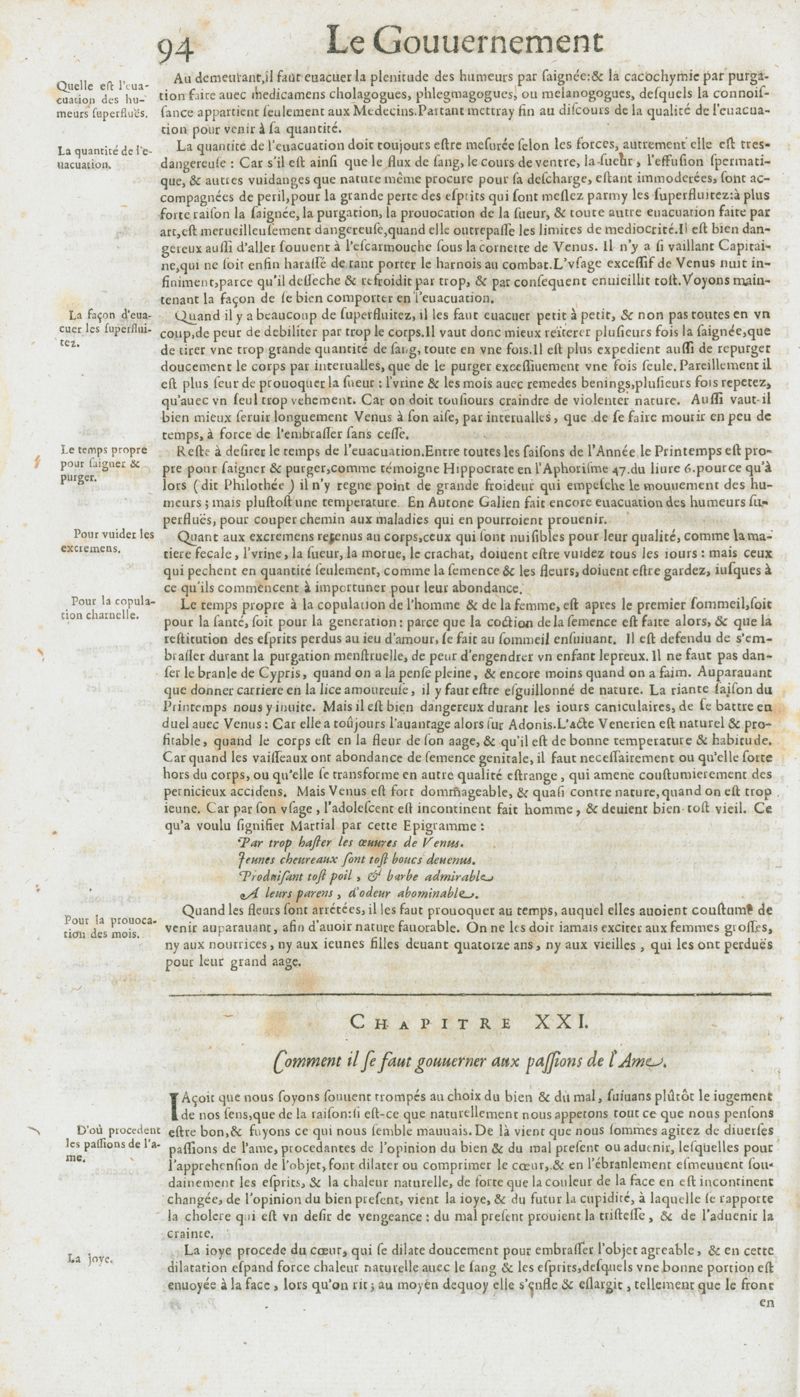 94
Le Gouuernement
Quelle est l'eua-
cuation des hu-
meurs superfluës.
Au demeurant,il faut euacuer la plenitude des humeurs par saignée:& la cacochymie par purga-
tion faite auec medicamens cholagogues, phlegmagogues, ou melanogogues, desquels la connois-
sance appartient seulement aux Medecins.Partant mettray fin au discours de la qualité de l'euacua-
tion pour venir à sa quantité.
La quantité de l'e-
uacuation.
La quantité de l'euacuation doit toujours estre mesurée selon les forces, autrement elle est tres-
dangereuse : Car s'il est ainsi que le flux de sang, le cours de ventre, la sueur, l'effusion spermati-
que, & autres vuidanges que nature même procure pour sa descharge, estant immoderées, sont ac-
compagnées de peril,pour la grande perte des esprits qui sont meslez parmy les superfluitez:à plus
forte raison la saignée, la purgation, la prouocation de la sueur, & toute autre euacuation faite par
art,est merueilleusement dangereuse,quand elle outrepasse les limites de mediocrité.Il est bien dan-
gereux aussi d'aller souuent à l'escarmouche sous la cornette de Venus. Il n'y a si vaillant Capitai-
ne,qui ne soit enfin harassé de tant porter le harnois au combat.L'vsage excessif de Venus nuit in-
finiment,parce qu'il desseche & refroidit par trop, & par consequent enuieillit tost.Voyons main-
tenant la façon de se bien comporter en l'euacuation.
La façon d'eua-
cuer les superflui-
tez.
Quand il y a beaucoup de superfluitez, il les faut euacuer petit à petit, & non pas toutes en vn
coup,de peur de debiliter par trop le corps.Il vaut donc mieux reïterer plusieurs fois la saignée,que
de tirer vne trop grande quantité de sang, toute en vne fois.Il est plus expedient aussi de repurger
doucement le corps par interualles, que de le purger excessiuement vne fois seule. Pareillement il
est plus seur de prouoquer la sueur : l'vrine & les mois auec remedes benings,plusieurs fois repetez,
qu'auec vn seul trop vehement. Car on doit tousiours craindre de violenter nature. Aussi vaut-il
bien mieux seruir longuement Venus à son aise, par interualles, que de se faire mourir en peu de
temps, à force de l'embrasser sans cesse.
Le temps propre
pour saigner &
purger.
Reste à desirer le temps de l'euacuation.Entre toutes les saisons de l'Année le Printemps est pro-
pre pour saigner & purger,comme témoigne Hippocrate en l'Aphorisme 47.du liure 6.pource qu'à
lors ( dit Philothée ) il n'y regne point de grande froideur qui empesche le mouuement des hu-
meurs ; mais plustost une temperature. En Autone Galien fait encore euacuation des humeurs su-
perfluës, pour couper chemin aux maladies qui en pourroient prouenir.
Pour vuider les
excremens.
Quant aux excremens retenus au corps,ceux qui sont nuisibles pour leur qualité, comme la ma-
tiere fecale, l'vrine, la sueur, la morue, le crachat, doiuent estre vuidez tous les iours : mais ceux
qui pechent en quantité seulement, comme la semence & les fleurs, doiuent estre gardez, iusques à
ce qu'ils commencent à importuner pour leur abondance.
Pour la copula-
tion charnelle.
Le temps propre à la copulation de l'homme & de la femme, est apres le premier sommeil,soit
pour la santé, soit pour la generation : parce que la coction de la semence est faite alors, & que la
restitution des esprits perdus au ieu d'amour, se fait au sommeil ensuiuant. Il est defendu de s'em-
brasser durant la purgation menstruelle, de peur d'engendrer vn enfant lepreux. Il ne faut pas dan-
ser le branle de Cypris, quand on a la pense pleine, & encore moins quand on a faim. Auparauant
que donner carriere en la lice amoureuse, il y faut estre esguillonné de nature. La riante saison du
Printemps nous y inuite. Mais il est bien dangereux durant les iours caniculaires, de se battre en
duel auec Venus : Car elle a toûjours l'auantage alors sur Adonis.L'acte Venerien est naturel & pro-
fitable, quand le corps est en la fleur de son aage, & qu'il est de bonne temperature & habitude.
Car quand les vaisseaux ont abondance de semence genitale, il faut necessairement ou qu'elle sorte
hors du corps, ou qu'elle se transforme en autre qualité estrange, qui amene coustumierement des
pernicieux accidens. Mais Venus est fort dommageable, & quasi contre nature,quand on est trop
ieune. Car par son vsage, l'adolescent est incontinent fait homme, & deuient bien-tost vieil. Ce
qu'a voulu signifier Martial par cette Epigramme :
Par trop haster les œuures de Venus.
Jeunes cheureaux sont tost boucs deuenus.
Produisant tost poil, & barbe admirable
A leurs parens, d'odeur abominable.
Pour la prouoca-
tion des mois.
Quand les fleurs sont arrétées, il les faut prouoquer au temps, auquel elles auoient coustume de
venir auparauant, afin d'auoir nature fauorable. On ne les doit iamais exciter aux femmes grosses,
ny aux nourrices, ny aux ieunes filles deuant quatorze ans, ny aux vieilles, qui les ont perduës
pour leur grand aage.
CHAPITRE XXI.
Comment il se faut gouuerner aux passions de l'Ame.
IAçoit que nous soyons souuent trompés au choix du bien & du mal, suiuans plûtôt le iugement
de nos sens,que de la raison:si est-ce que naturellement nous appetons tout ce que nous pensons
D'où procedent
les passions de l'a-
me.
estre bon,& fuyons ce qui nous semble mauuais. De là vient que nous sommes agitez de diuerses
passions de l'ame, procedantes de l'opinion du bien & du mal present ou aduenir, lesquelles pour
l'apprehension de l'objet, font dilater ou comprimer le cœur, & en l'ébranlement esmeuuent sou-
dainement les esprits, & la chaleur naturelle, de sorte que la couleur de la face en est incontinent
changée, de l'opinion du bien present, vient la ioye, & du futur la cupidité, à laquelle se rapporte
la cholere qui est vn desir de vengeance : du mal present prouient la tristesse, & de l'aduenir la
crainte.
La joye.
La ioye procede du cœur, qui se dilate doucement pour embrasser l'objet agreable, & en cette
dilatation espand force chaleur naturelle auec le sang & les esprits,desquels vne bonne portion est
enuoyée à la face, lors qu'on rit ; au moyen dequoy elle s'enfle & eslargit, tellement que le front
en